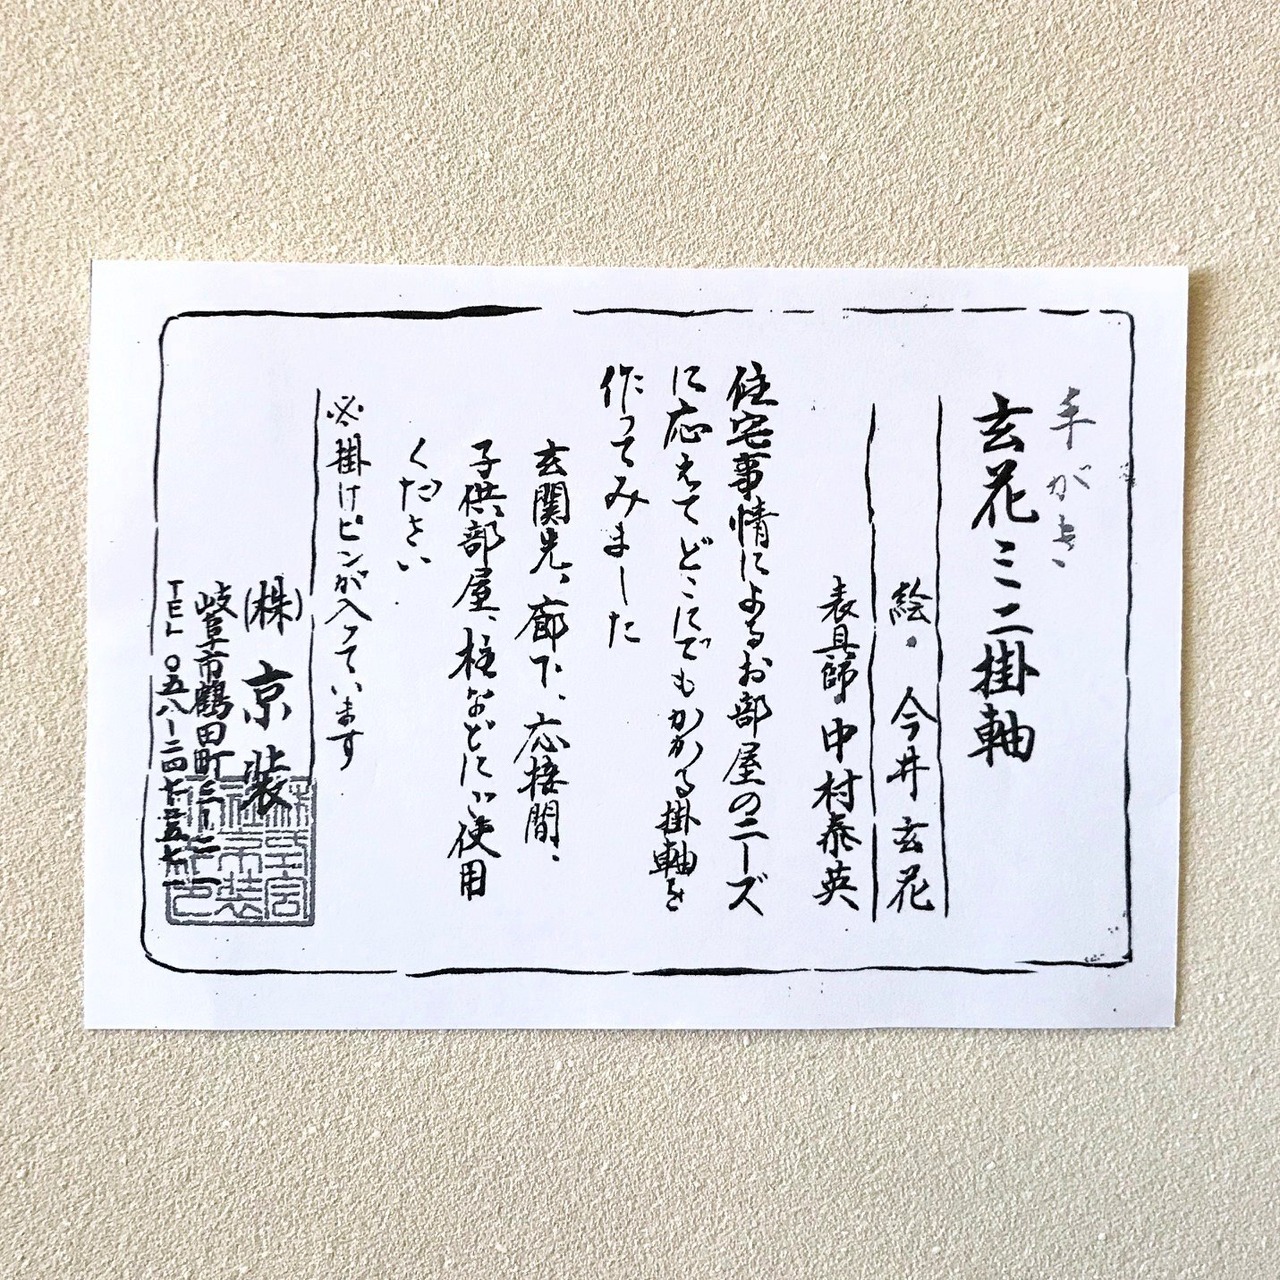 手がき
玄花ミニ掛軸
絵・今井玄花
表具師 中村泰英
住宅事情によるお部屋のニーズ
に応えてどこにでもかかる掛軸を
作ってみました
玄関先、廊下、応接間、
子供部屋、柱などにご使用
ください
※掛けピンが入っています
(株)京装
岐阜市鶴田町三ー二一
TEL 〇五八ー二四七ー